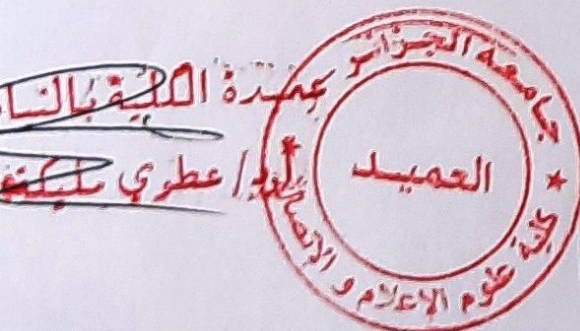 عميدة الكلية بالنيا
أ.د/ عطوي مليكة
جامعة الجزائر
العميد
كلية علوم الإعلام و الإتصال